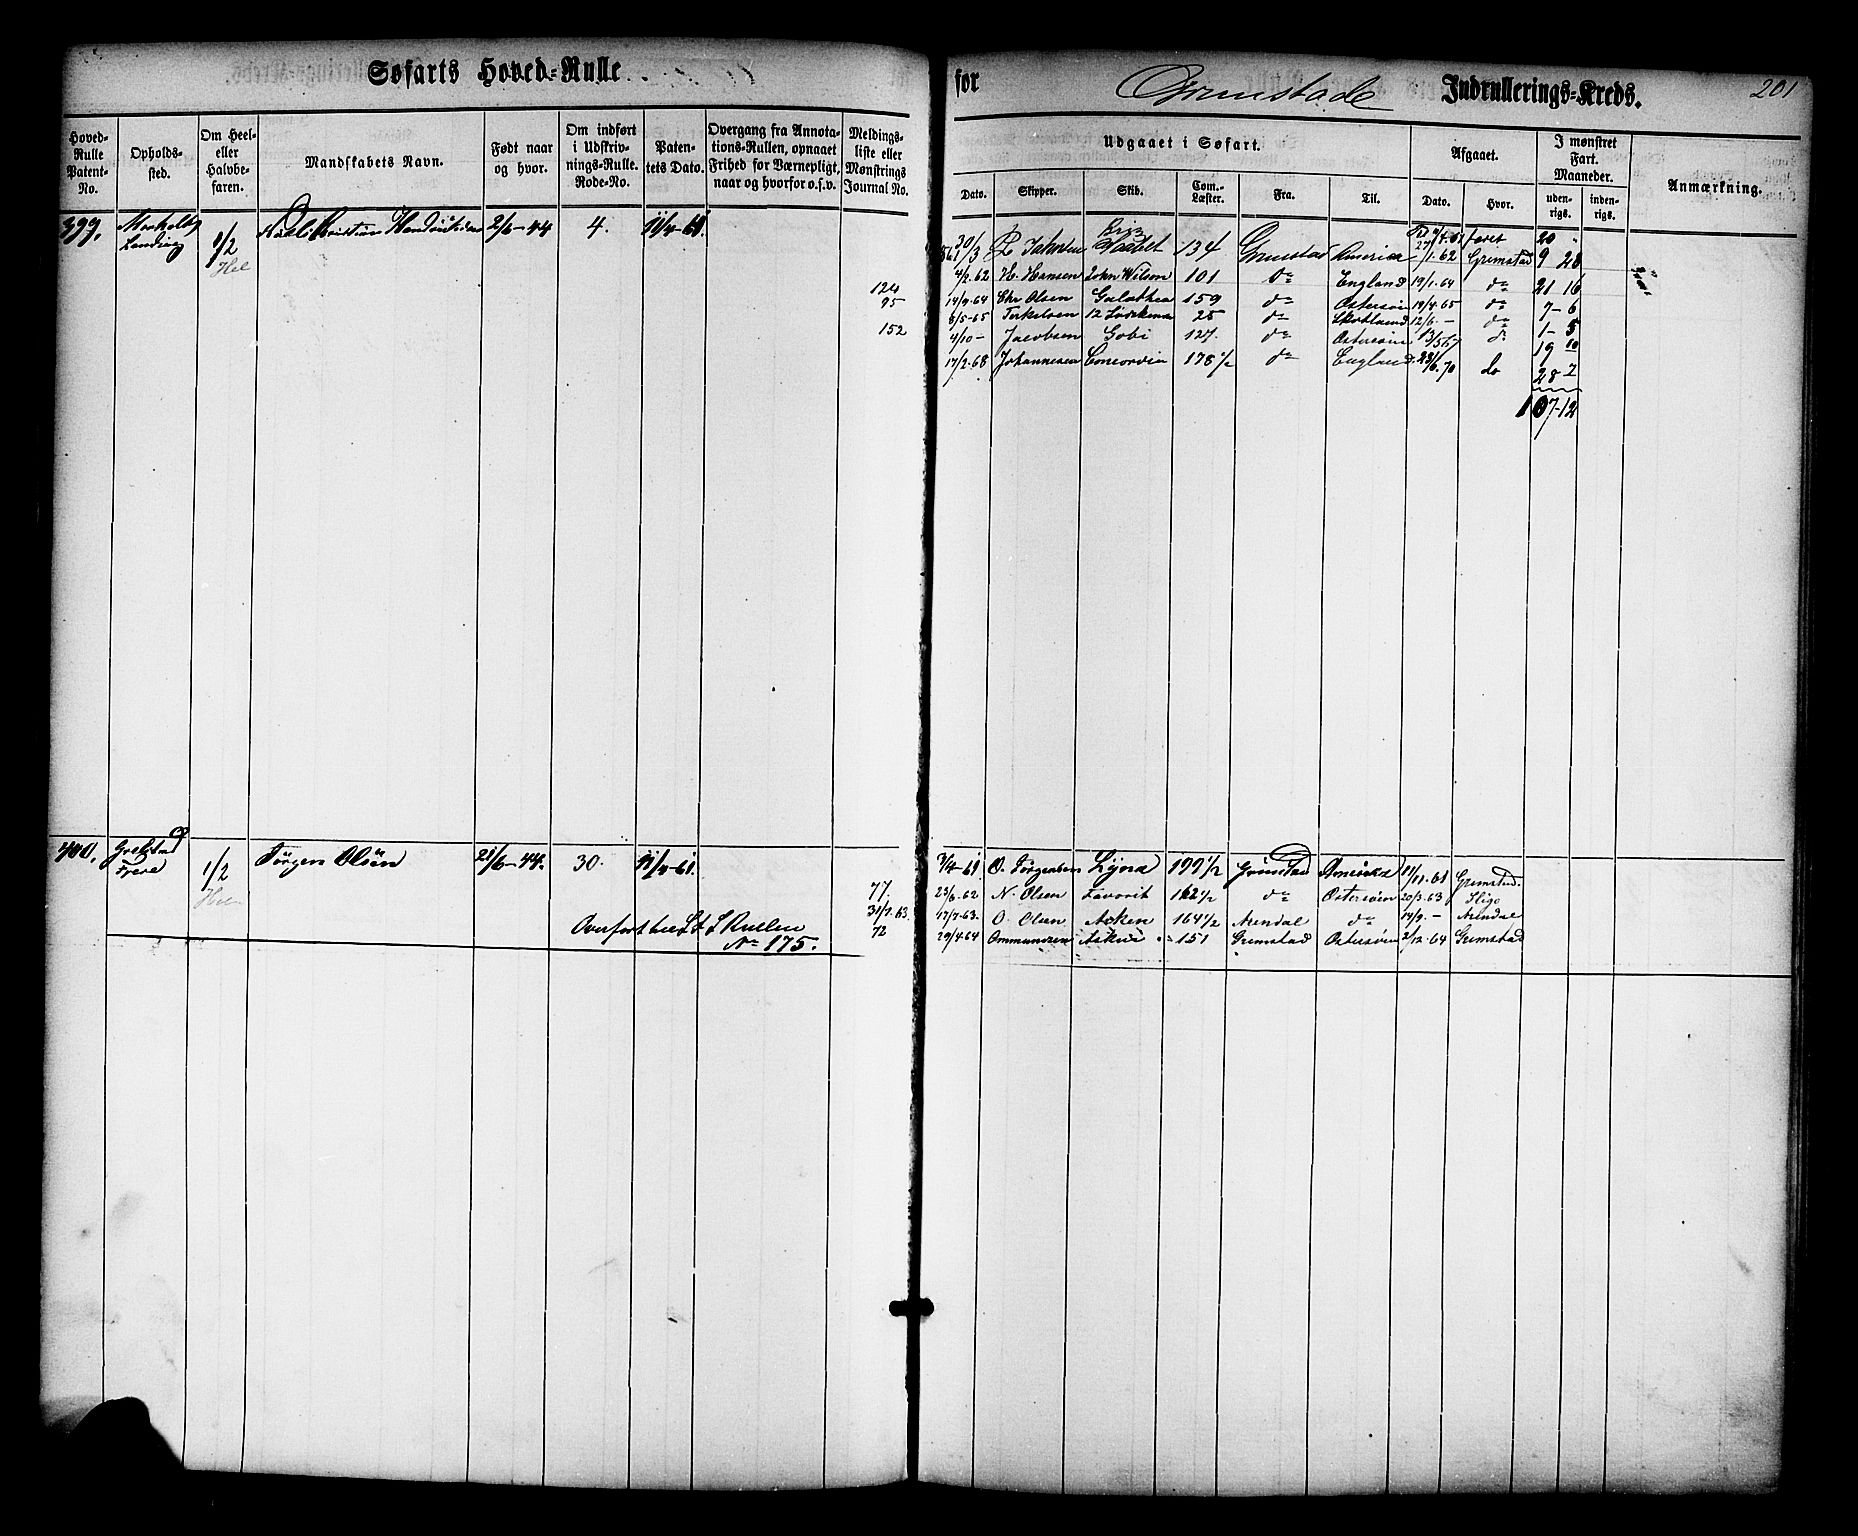 Søfarts Hoved-Rulle
for Grimstads Indrullerings-Kreds.
201
Hoved-Rulle Patent-No.
Opholds-sted.
Om Heel- eller Halvbe-faren.
Mandskabets Navn.
Født naar og hvor.
Om indført i Udskriv-nings-Rulle. Rode-No.
Paten-tets Dato.
Overgang fra Annota-tions-Rullen, opnaaet Frihed for Værnepligt, naar og hvorfor o.s.v.
Meldings-liste eller Mønstrings Journal No.
Udgaaet i Søfart.
Dato. Skipper. Skib. Com.-Læster. Fra. Til.
Afgaaet.
Dato. Hvor.
I mønstret Fart. Maaneder.
uden-rigs. inden-rigs.
Anmærkning.
399. 1/2 Hendriksen 2/6-44 4. 11/4-61.
Landvig Hel
Brig
30/3 Haabet 134 Grimstad America 27/1.62 Grimstad 9 28
4/2.62 H. Hansen John Wilson 101 do England 19/1.64 do 21 16
124
14/9.64 Chr Olsen Galathea 159 do Østersøen 19/4.65 do 7-6
95
8/5-65 Terkelsen 25 do Skotland 12/6- do 1-5
152
4/10- Jacobsen Gobi 127. do Østersøen 13/5 67 do 19 10
17/2.68 Johannesen Concordia 178 1/2 do England 23/6.70 do 28 2
107-12
400. 1/2 Jörgen Olsön 21/6-44. 30. 11/4-61.
Fjere Hel
3/4-61 O. Jörgensen Lyna 199 1/2 Grimstad America 11/11.61 Grimstad.
77. 23/6.62 N. Olsen Favorit 162 1/2 do Østersøen 20/3.63 Sligo
31/7.63. 17/7.63. O. Olsen Asken 164 1/2 Arendal do 14/9.- Arendal
72 29/4.64 Ommundsen Asken 151 Grimstad Østersøen 2/12.64 Grimstad
Overfort Rullen
No 175.